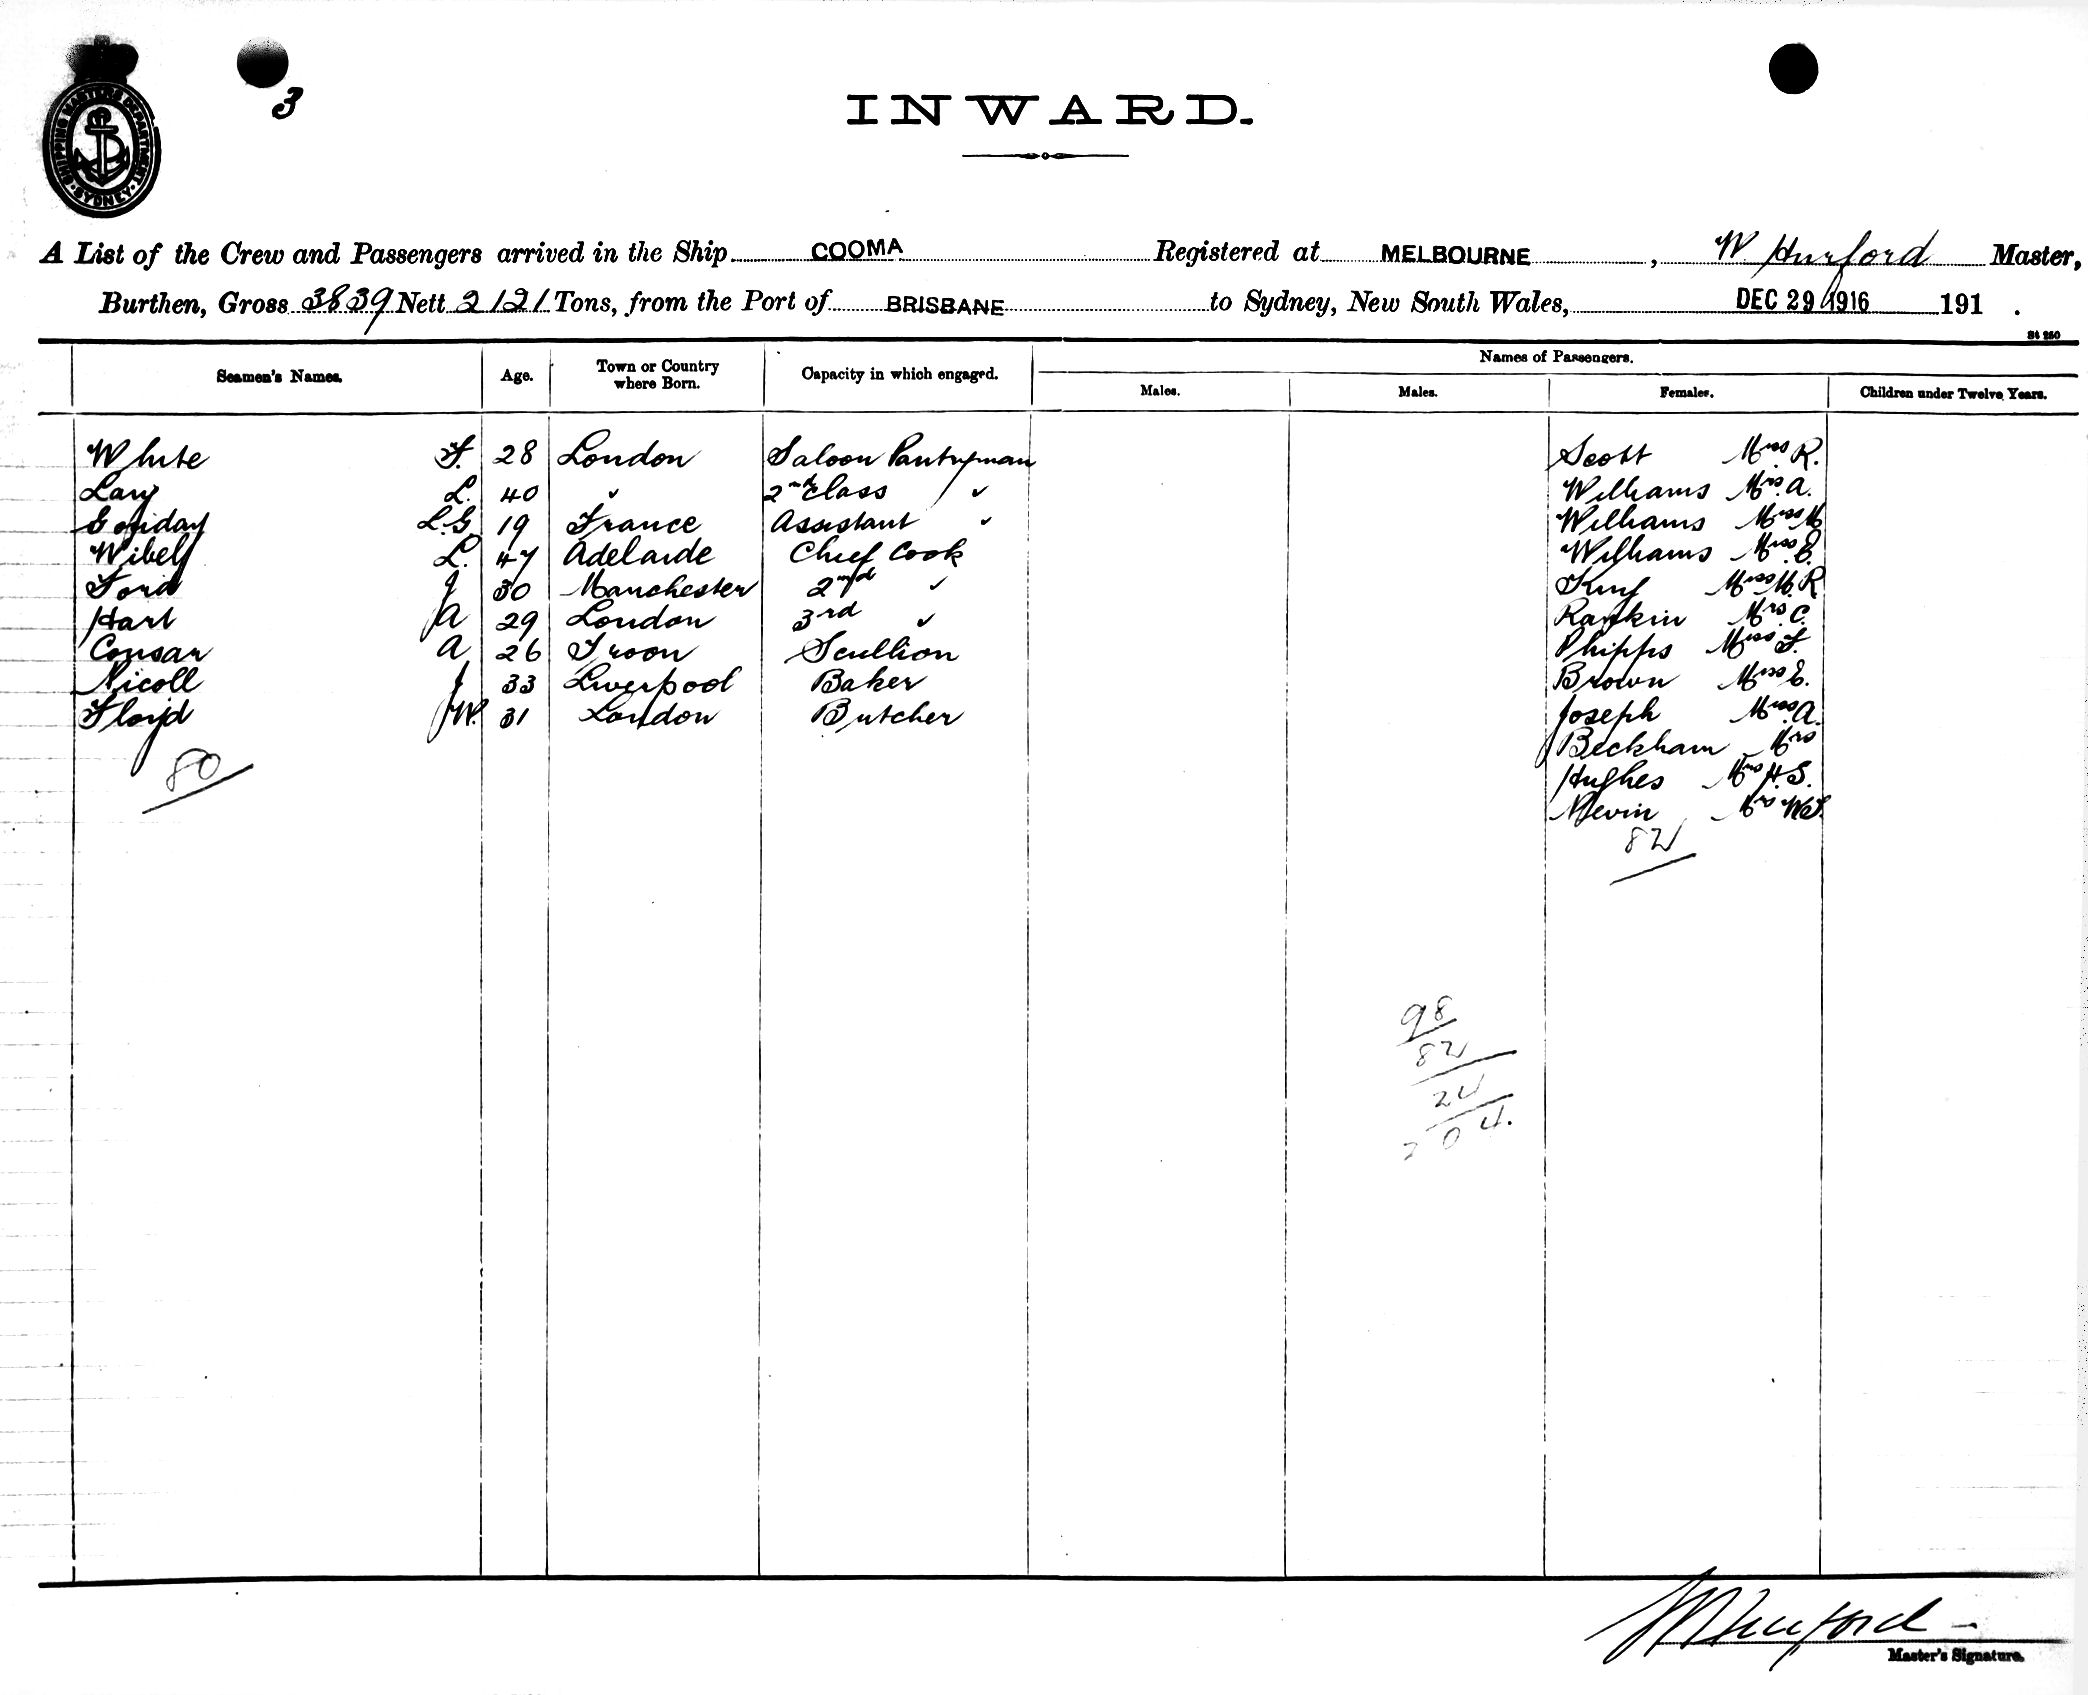 SHIPPING MASTERS DEPARTMENT · SYDNEY ·
3
INWARD.
A List of the Crew and Passengers arrived in the Ship COOMA Registered at MELBOURNE, W Hurford Master,
Burthen, Gross 3839 Nett 2121 Tons, from the Port of BRISBANE to Sydney, New South Wales, DEC 29 1916 191 .
St 250
Names of Passengers.
Seamen's Names. Age. Town or Country where Born. Capacity in which engaged. Males. Males. Females. Children under Twelve Years.
White F. 28 London Saloon Pantryman Scott Miss R.
L. 40 " 2nd Class " Williams Mrs. A.
L.G 19 France Assistant " Williams Miss M
L. 47 Adelaide Chief Cook Williams Miss E.
Ford J 30 Manchester 2nd " King Miss M. R
Hart A 29 London 3rd " Rankin Mrs C.
A 26 Troon Scullion Phipps Miss F.
Nicoll J 33 Liverpool Baker Brown Miss E.
Floyd J.W. 31 London Butcher Joseph Miss A.
Beckham Mrs
80 Hughes Mrs H.S.
Nevin Mrs W.F.
82
98
82
24
204.
W Hurford
Master's Signature.